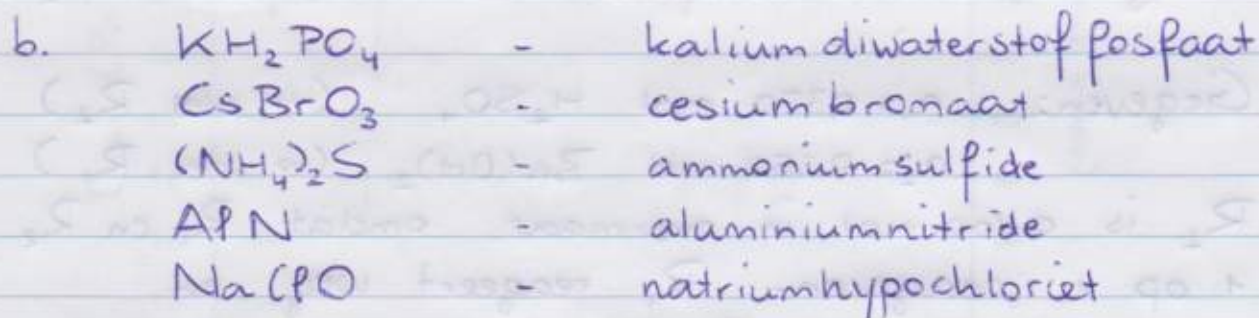 b. KH₂PO₄ - kalium diwaterstof fosfaat
CsBrO₃ - cesium bromaat
(NH₄)₂S - ammonium sulfide
AlN - aluminiumnitride
NaClO - natriumhypochloriet